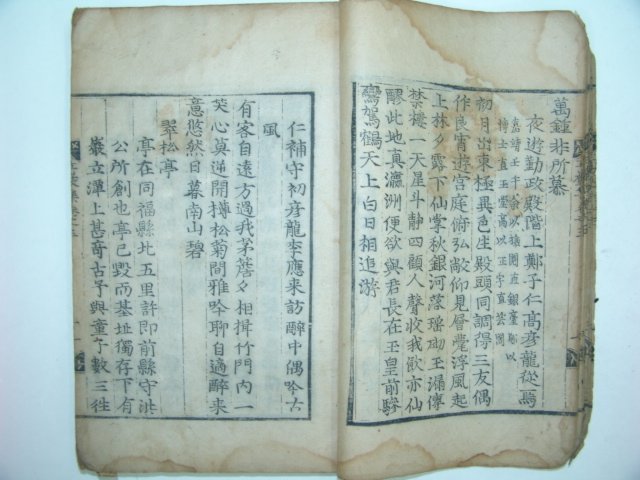 萬鍾非所慕
夜遊勤政殿階上鄭子仁高彥龍從焉
初月出東極異色生殿頭同調得三友偶
作良宵遊宮庭俯弘敞仰見層甍浮風起
上林夕露下仙掌秋銀河落瑤砌玉漏傳
禁樓一天星斗靜四顧人聲收我歌亦仙
醪此地真瀛洲便欲與君長在玉皇前驂
鸞駕鶴天上白日相追游
仁補守初彥龍李應来訪醉中偶吟古
風
有客自遠方過我茅簷夕相揖竹門內一
笑心莫逆開樽松菊間雅吟聊自適醉来
意悠然日暮南山碧
翠松亭
亭在同福縣北五里許即前縣守洪
公所創也亭已毀而基址獨存下有
巖立潭上甚奇古予與童子數三徃